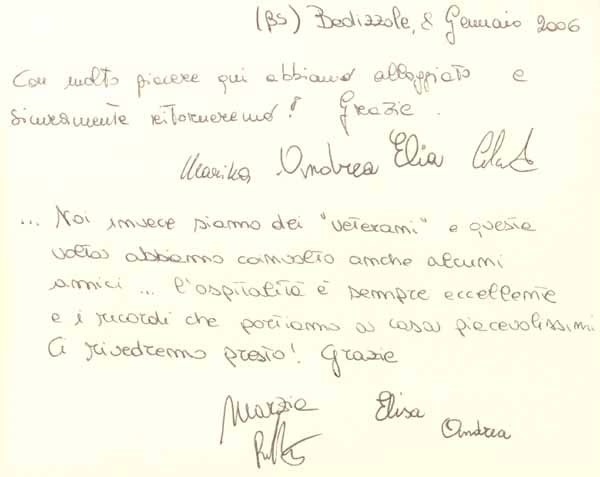 (BS) Bedizzole, 8 Gennaio 2006
Con molto piacere qui abbiamo alloggiato e
sicuramente ritorneremo! Grazie.
Marika Andrea Elia
... Noi invece siamo dei "veterani" e questa
volta abbiamo coinvolto anche alcuni
amici ... l'ospitalità è sempre eccellente
e i ricordi che portiamo a casa piacevolissimi
Ci rivedremo presto! Grazie
Marzia Elisa
Andrea